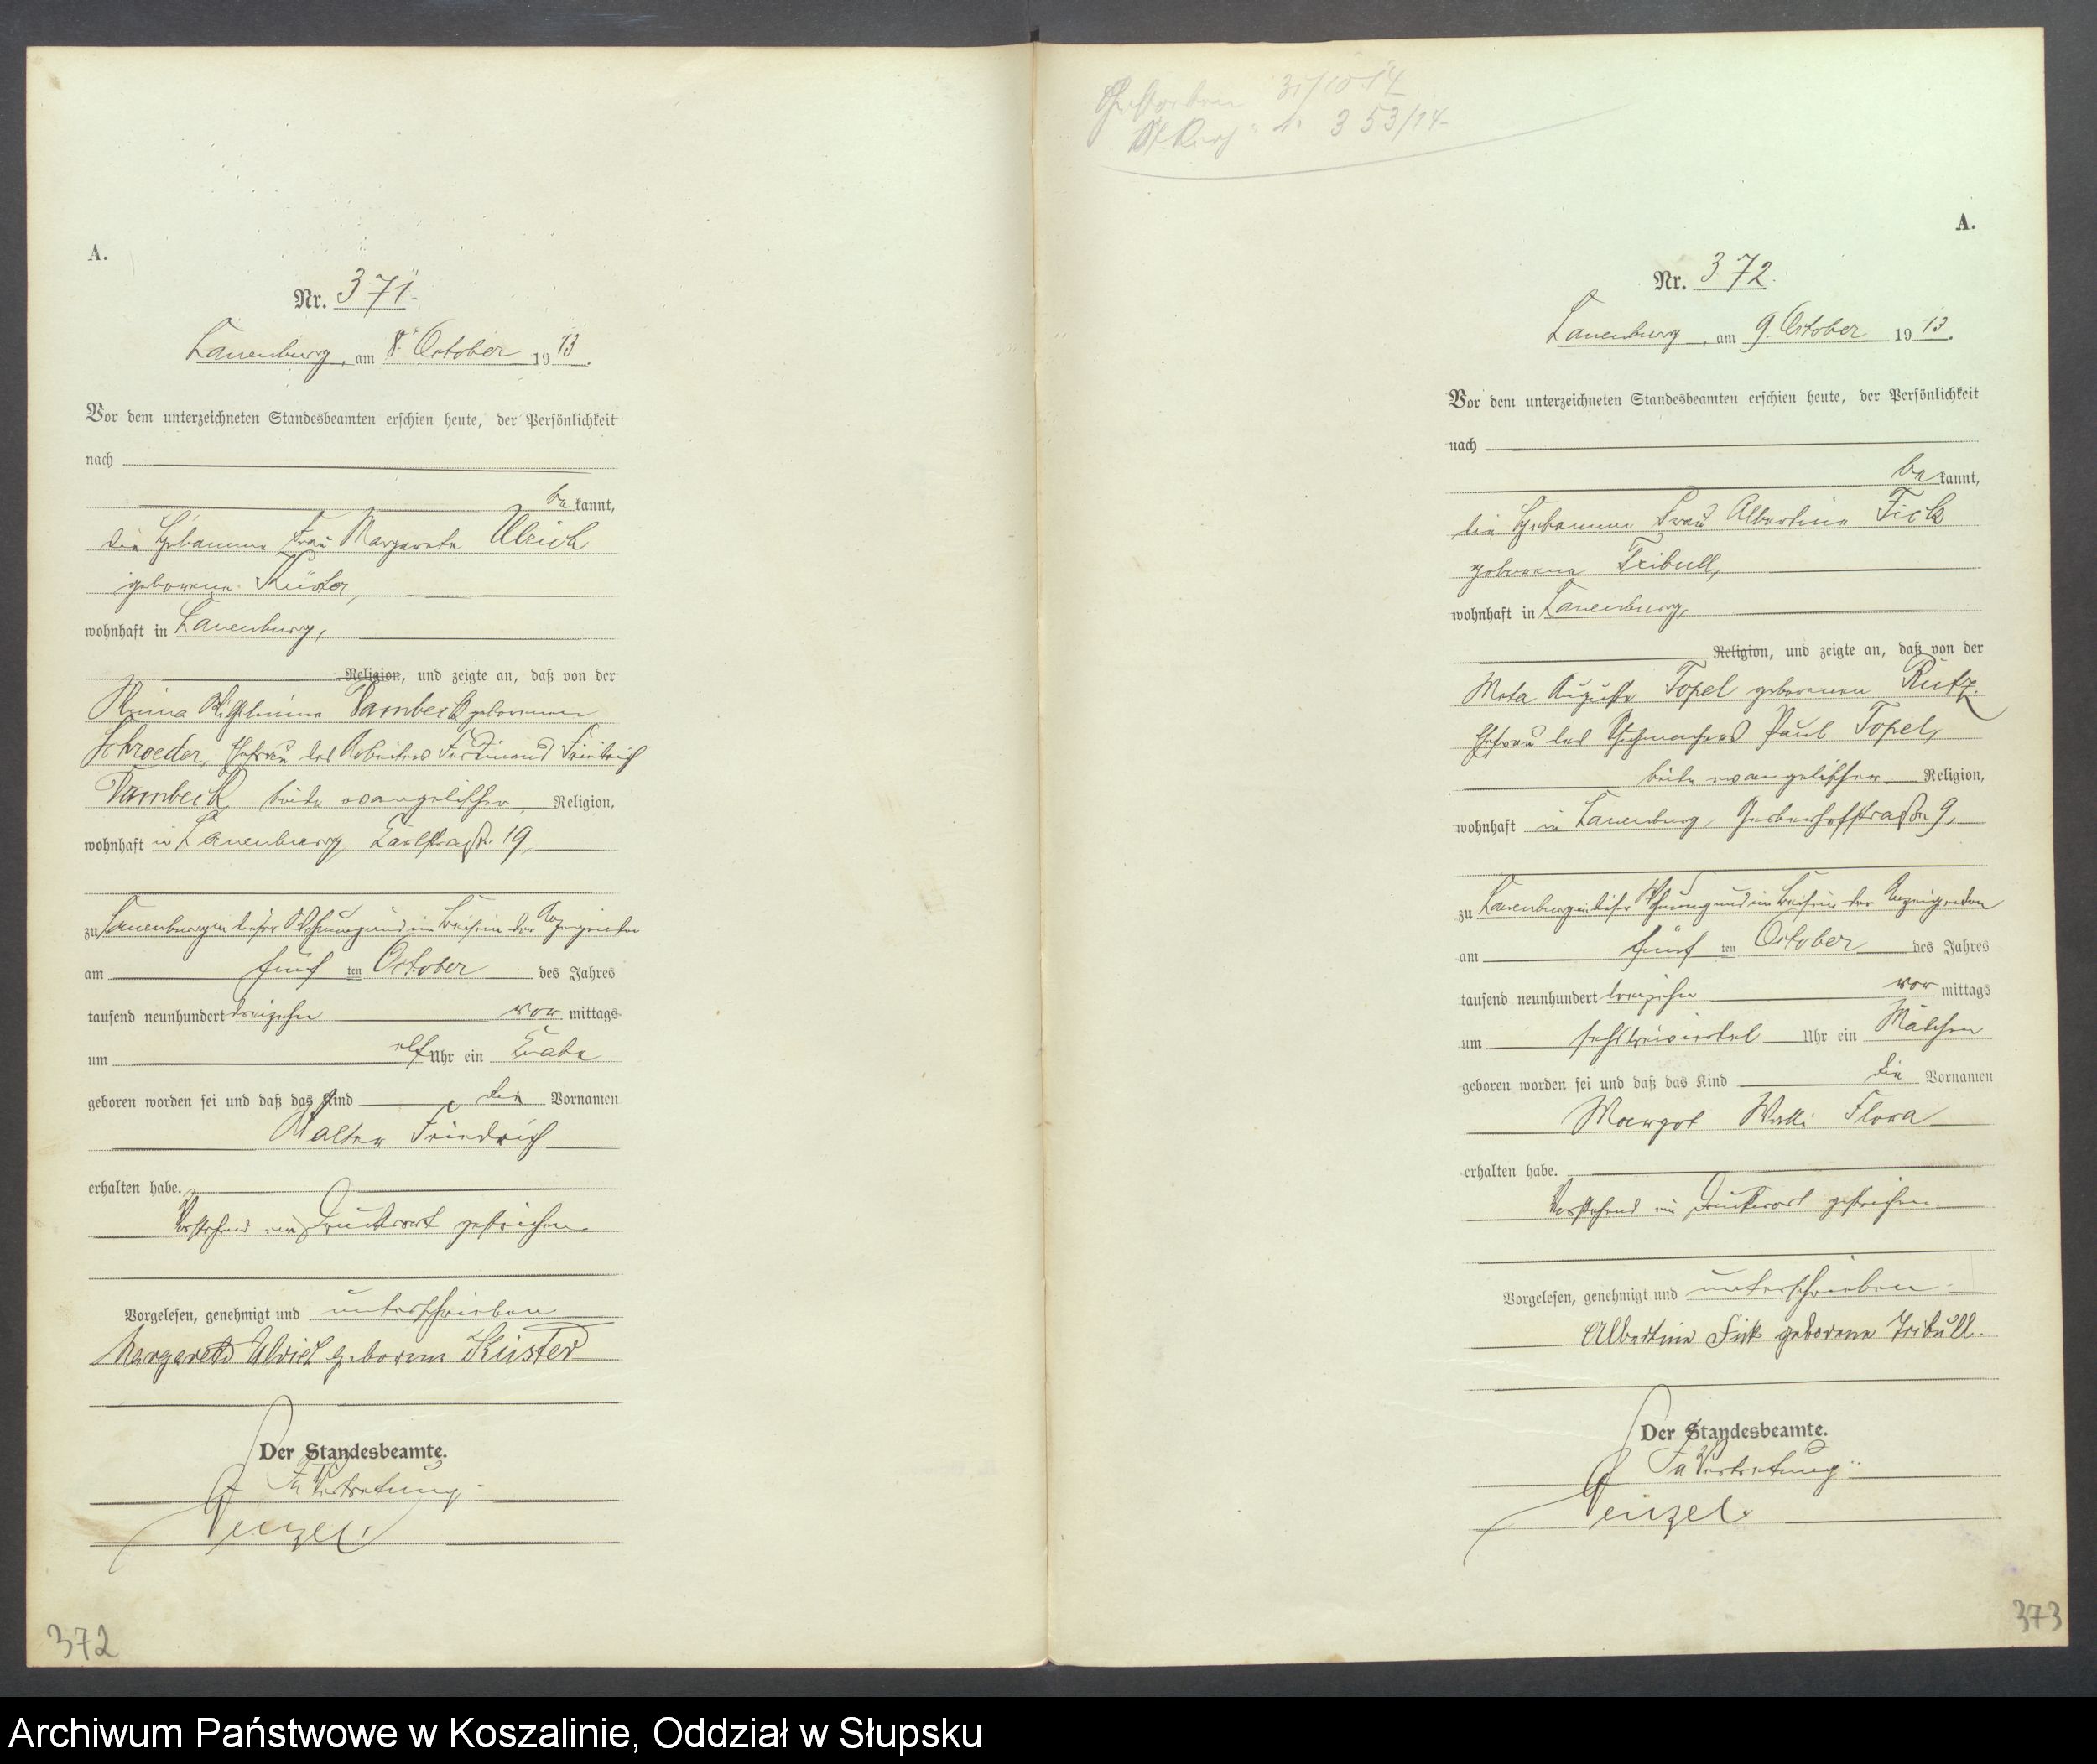 A.
Nr. 371.
Lauenburg, am 8. October 1913.
Vor dem unterzeichneten Standesbeamten erschien heute, der Persönlichkeit
nach
be kannt,
die Hebamme Frau Margarete Ulrich
geborene Küster,
wohnhaft in Lauenburg,
Religion, und zeigte an, daß von der
Wilhelmine Dambeck geborenen
Schroeder, Ehefrau des Arbeiters Ferdinand Friedrich
Dambeck, beide evangelischer Religion,
wohnhaft in Lauenburg Karlstraße 19,
zu Lauenburg in dieser Wohnung und im Beisein der Anzeigenden
am fünf ten October des Jahres
tausend neunhundert dreizehn vor mittags
um elf Uhr ein Knabe
geboren worden sei und daß das Kind die Vornamen
Walter Friedrich
erhalten habe.
Vorstehend ein Druckwort gestrichen.
Vorgelesen, genehmigt und unterschrieben
Margarete Ulrich geborene Küster
Der Standesbeamte.
In Vertretung.
372
Gestorben 31/10 14
353/14
A.
Nr. 372.
Lauenburg, am 9. October 1913.
Vor dem unterzeichneten Standesbeamten erschien heute, der Persönlichkeit
nach
be kannt,
die Hebamme Frau Albertine Fick
geborene Tribull,
wohnhaft in Lauenburg,
Religion, und zeigte an, daß von der
Meta Auguste Topel geborenen Rutz,
Ehefrau des Paul Topel,
beide evangelischer Religion,
wohnhaft in Lauenburg, Gerberhofstraße 9,
zu Lauenburg in dieser Wohnung und im Beisein der Anzeigenden
am fünf ten October des Jahres
tausend neunhundert dreizehn vor mittags
um sechs dreiviertel Uhr ein Mädchen
geboren worden sei und daß das Kind die Vornamen
Margot Flora
erhalten habe.
Vorstehend ein Druckwort gestrichen
Vorgelesen, genehmigt und unterschrieben
Albertine Fick geborene Tribull.
Der Standesbeamte.
In Vertretung
373
Archiwum Państwowe w Koszalinie, Oddział w Słupsku